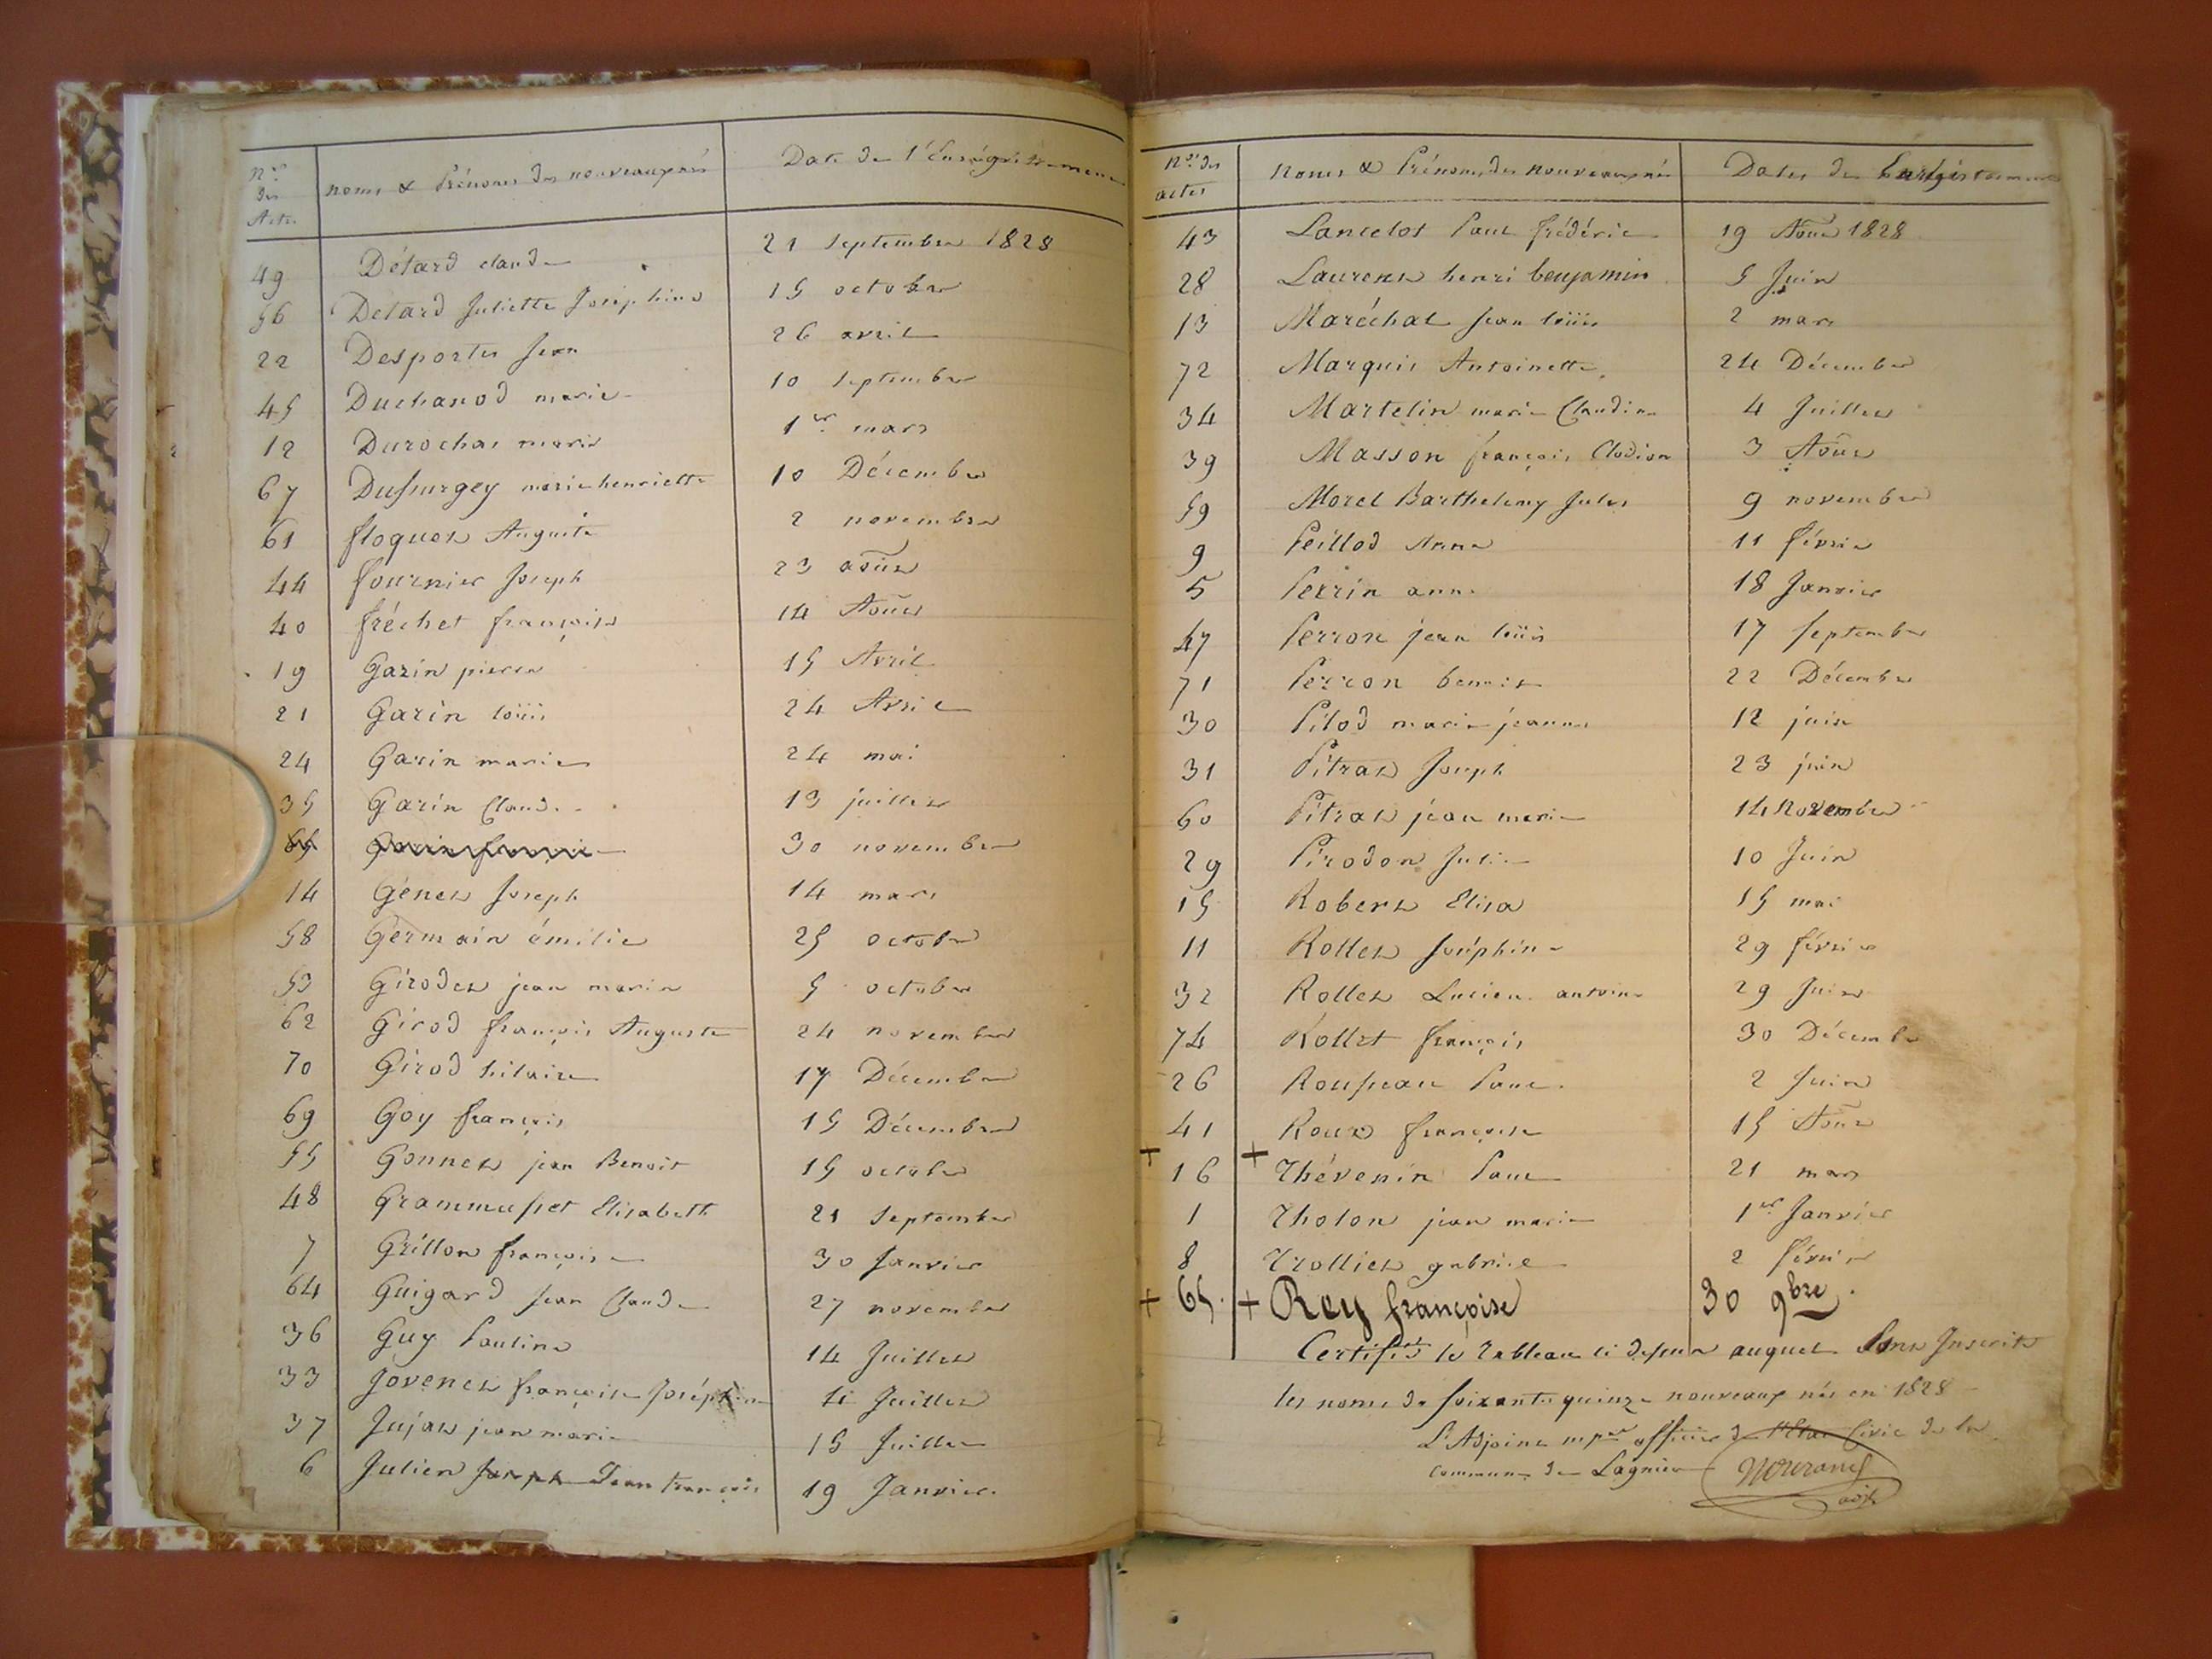 Nos des Actes | noms & Prénoms des nouveaux nés | Date de l'Enregistrement
49 Détard claude 21 septembre 1828
56 Detard Juliette Joséphine 15 octobre
22 Desportes Jean 26 avril
45 Duchanod marie 10 septembre
12 Durochas marie 1er mars
67 Dussurgey marie henriette 10 Décembre
61 floquet Auguste 2 novembre
44 fournier Joseph 23 août
40 fréchet françoise 14 Août
19 Garin pierre 15 Avril
21 Garin loüis 24 Avril
24 Garin marie 24 mai
35 Garin Claude 13 juillet
65 Garin françoise 30 novembre
14 Génet Joseph 14 mars
58 Germain émilie 25 octobre
53 Girodet jean marie 5 octobre
62 Girod françois Auguste 24 novembre
70 Girod hilaire 17 Décembre
69 Goy françois 15 Décembre
55 Gonnet jean Benoit 15 octobre
48 Grammusset Elisabeth 21 Septembre
7 Grillon françoise 30 Janvier
64 Guigard Jean Claude 27 novembre
36 Guy Pauline 14 Juillet
33 Jovenet françoise Joséphine 4 Juillet
37 Jujat jean marie 15 Juillet
6 Julien Joseph Jean françois 19 Janvier
Nos des actes | Noms & Prénoms des nouveaux nés | Dates des Enregistrements
43 Lancelot Paul frédéric 19 Août 1828
28 Laurent henri benjamin 5 Juin
13 Maréchal Jean loüis 2 mars
72 Marquis Antoinette 24 Décembre
34 Martelin marie Claudine 4 Juillet
39 Masson françois Clodion 3 Août
59 Morel Barthelemy Jules 9 novembre
9 Peillod Anne 11 février
5 Perrin anne 18 Janvier
47 Perron jean loüis 17 septembre
71 Perron benoit 22 Décembre
30 Pilod marie jeanne 12 juin
31 Pitrat Joseph 23 juin
60 Pitrat jean marie 14 Novembre
29 Pirodon Julie 10 Juin
15 Robert Elisa 15 mai
11 Rollet Joséphine 29 février
32 Rollet Lucien antoine 29 Juin
74 Rollet françois 30 Décembre
26 Rousseau Paul 2 Juin
41 Roux françoise 15 Août
+ 16 + Thévenin Paul 21 mars
1 Tholon jean marie 1er Janvier
8 Trolliet gabriel 2 février
+ 65. + Rey françoise 30 9bre.
Certifié le Tableau ci dessus auquel sont Inscrits
les noms de soixante quinze nouveaux nés en 1828
L'Adjoint mpal officier de l'Etat Civil de la
commune de Lagnieu
adjt